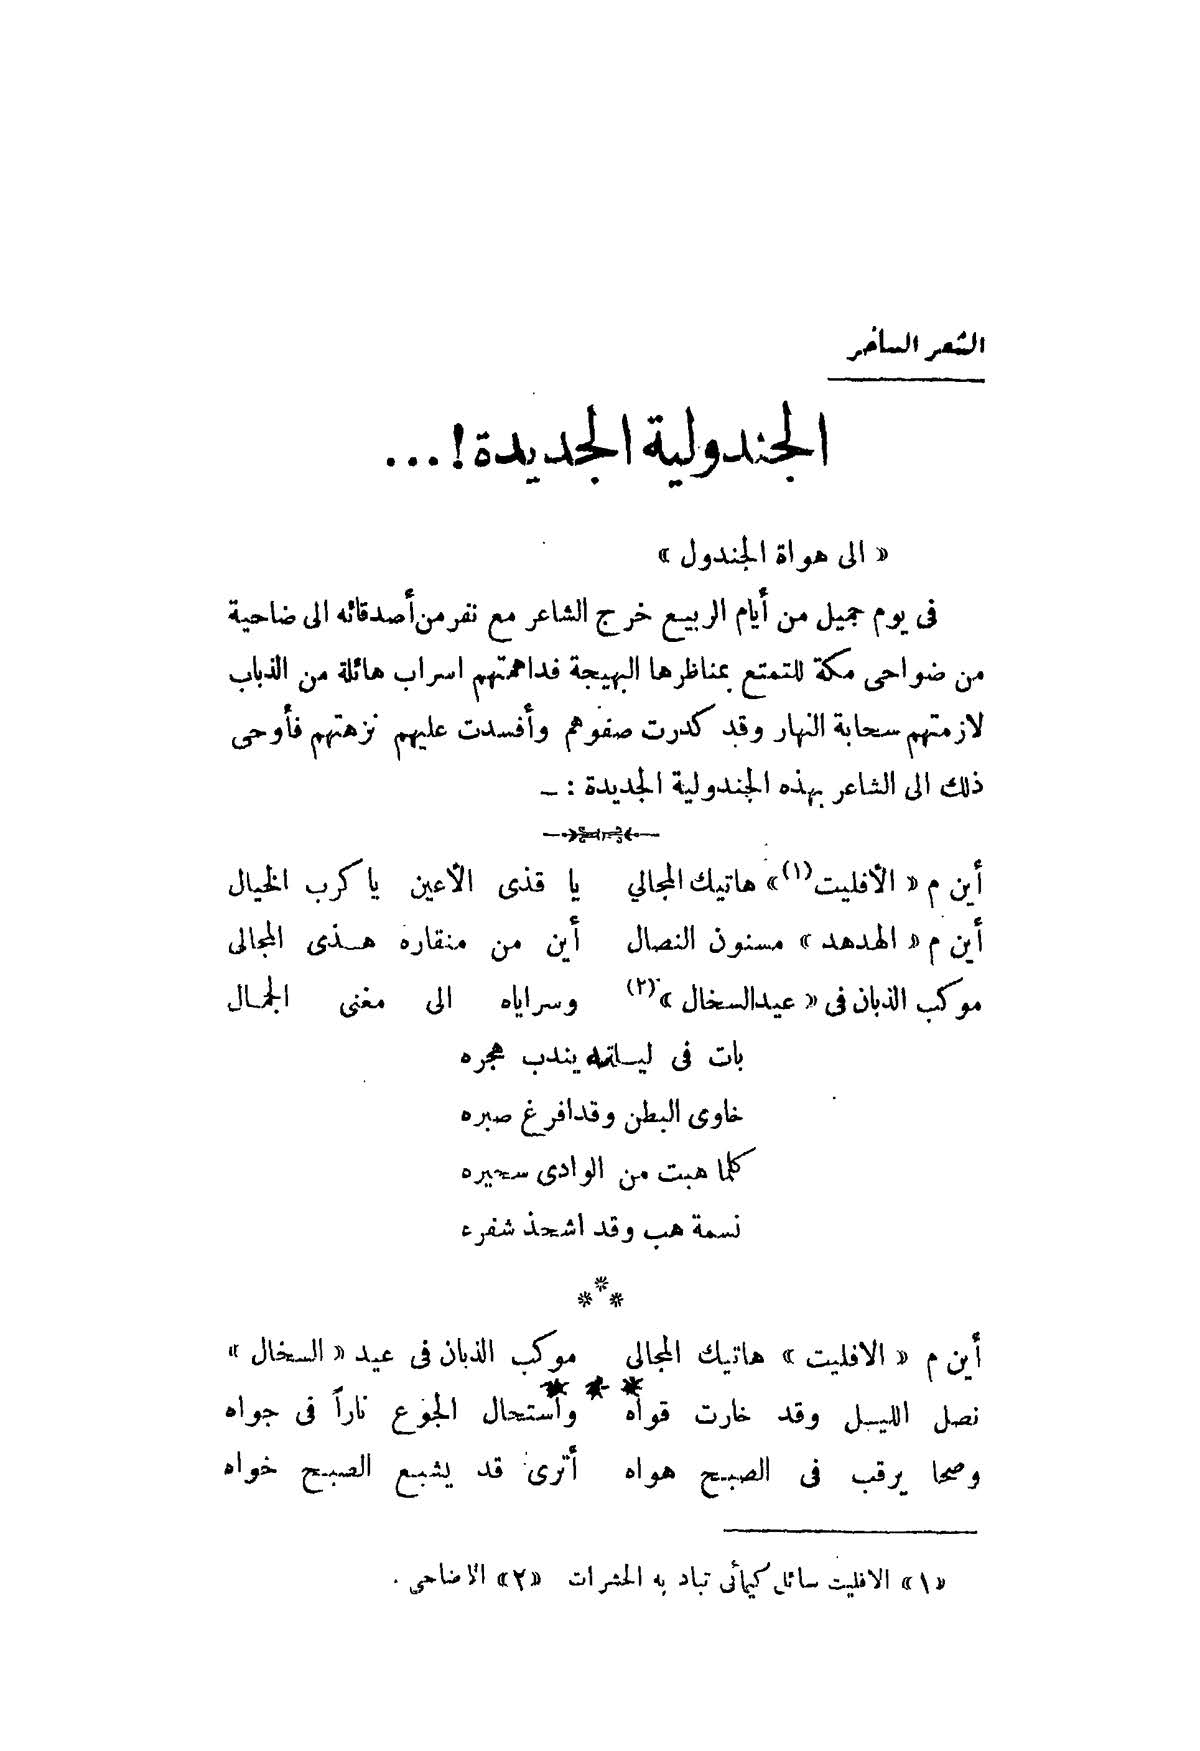 الشعر الساخر
الجندولية الجديدة!...
« الى هواة الجندول »
فى يوم جميل من أيام الربيع خرج الشاعر مع نفر من أصدقائه الى ضاحية
من ضواحى مكة للتمتع بمناظرها البهيجة فداهمتهم اسراب هائلة من الذباب
لازمتهم سحابة النهار وقد كدرت صفوهم وأفسدت عليهم نزهتهم فأوحى
ذلك الى الشاعر بهذه الجندولية الجديدة : ـ
أين م « الأفليت(١)» هاتيك المجالي يا قذى الأعين يا كرب الخيال
أين م « الهدهد » مسنون النصال أين من منقاره هـذى المجالى
موكب الذبان فى « عيد السخال »(٢) وسراياه الى مغنى الجمـال
بات فى ليـلته يندب هجره
خاوى البطن وقد افرغ صبره
كلما هبت من الوادى سحيره
نسمة هب وقد اشحذ شفره
***
أين م « الافليت » هاتيك المجالى موكب الذبان فى عيد « السخال »
* * *
نصل الليـل وقد خارت قواه وأستحال الجوع ناراً فى جواه
وصحا يرقب فى الصبـح هواه أترى قد يشبـع الصبـح خواه
«١» الافليت سائل كيمأئى تباد به الحشرات «٢» الاضاحى .